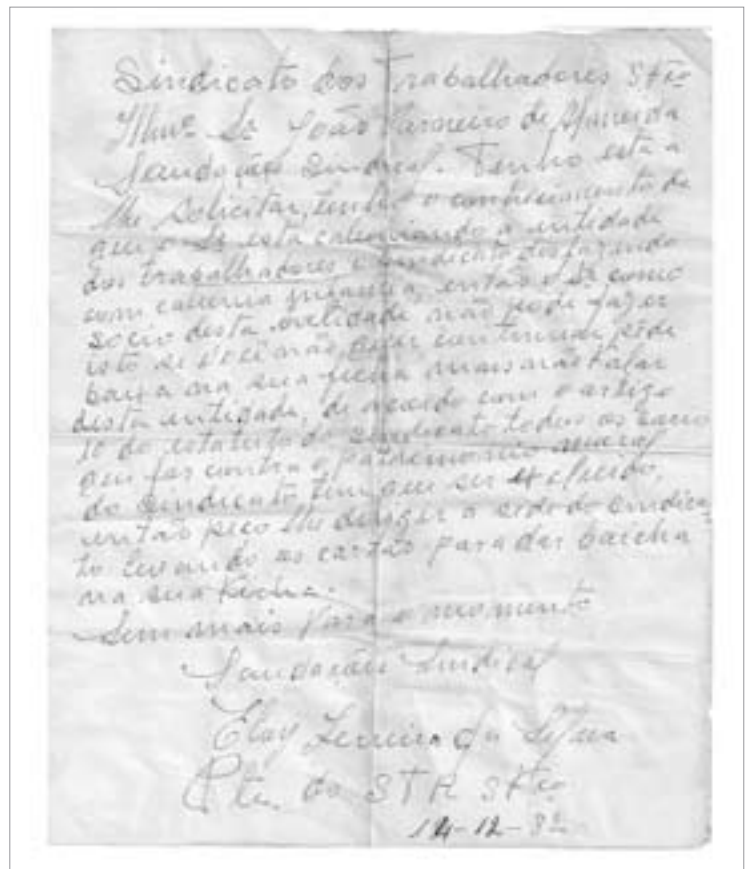 Sindicato dos Trabalhadores Stº
Ilmº Sr João Carneiro de Almeida
Saudação Sindical. Tenho esta a
lhe solicitar, tendo o conhecimento de
que o Sr esta caluniando a entidade
dos trabalhadores o Sindicato dos
com calunia, então o Sr como
socio desta entidade não pode fazer
isto se você não quer continuar pede
baixa na sua ficha mais não falar
desta entidade, de acordo com o artigo
10 do estatuto do Sindicato todos os
que for contra o patrimonio moral
do Sindicato tem que ser
então peço lhe dirigir a sede do Sindica
to levando os cartão para dar baicha
na sua ficha.
Sem mais Para o momento
Saudações Sindical
Eloy Ferreira da Silva
Pte. do STR Stº
14-12-82